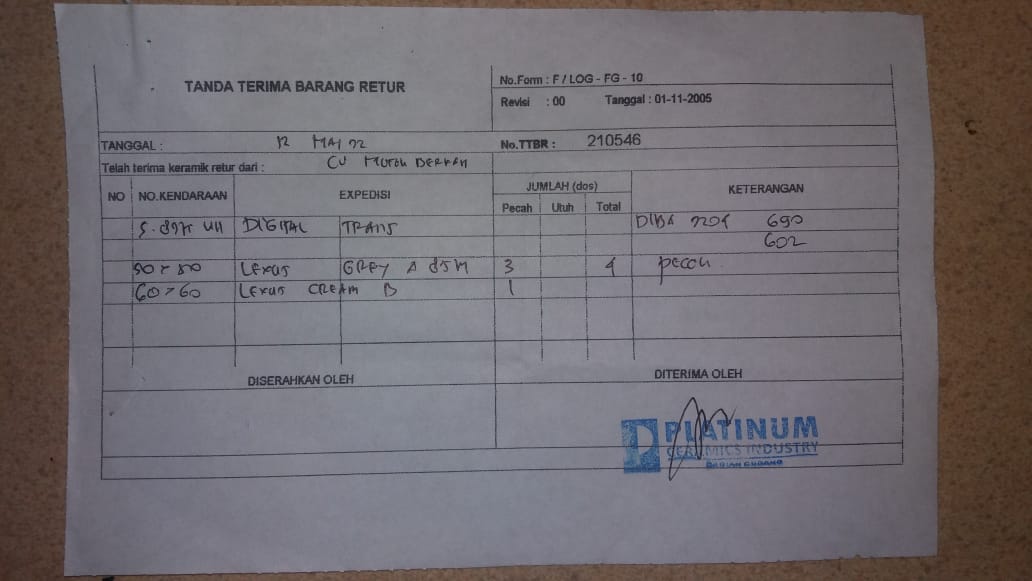 TANDA TERIMA BARANG RETUR
No.Form : F / LOG - FG - 10
Revisi : 00 Tanggal : 01-11-2005
TANGGAL : 12 MAI 22
No.TTBR : 210546
Telah terima keramik retur dari : CV
NO NO.KENDARAAN EXPEDISI JUMLAH (dos) KETERANGAN
Pecah Utuh Total
DIGITAL TRANS 690
602
LEXUS GREY A 3 4 pecah
60 x 60 LEXUS CREAM B 1
DISERAHKAN OLEH DITERIMA OLEH
PLATINUM
CERAMICS INDUSTRY
BAGIAN GUDANG